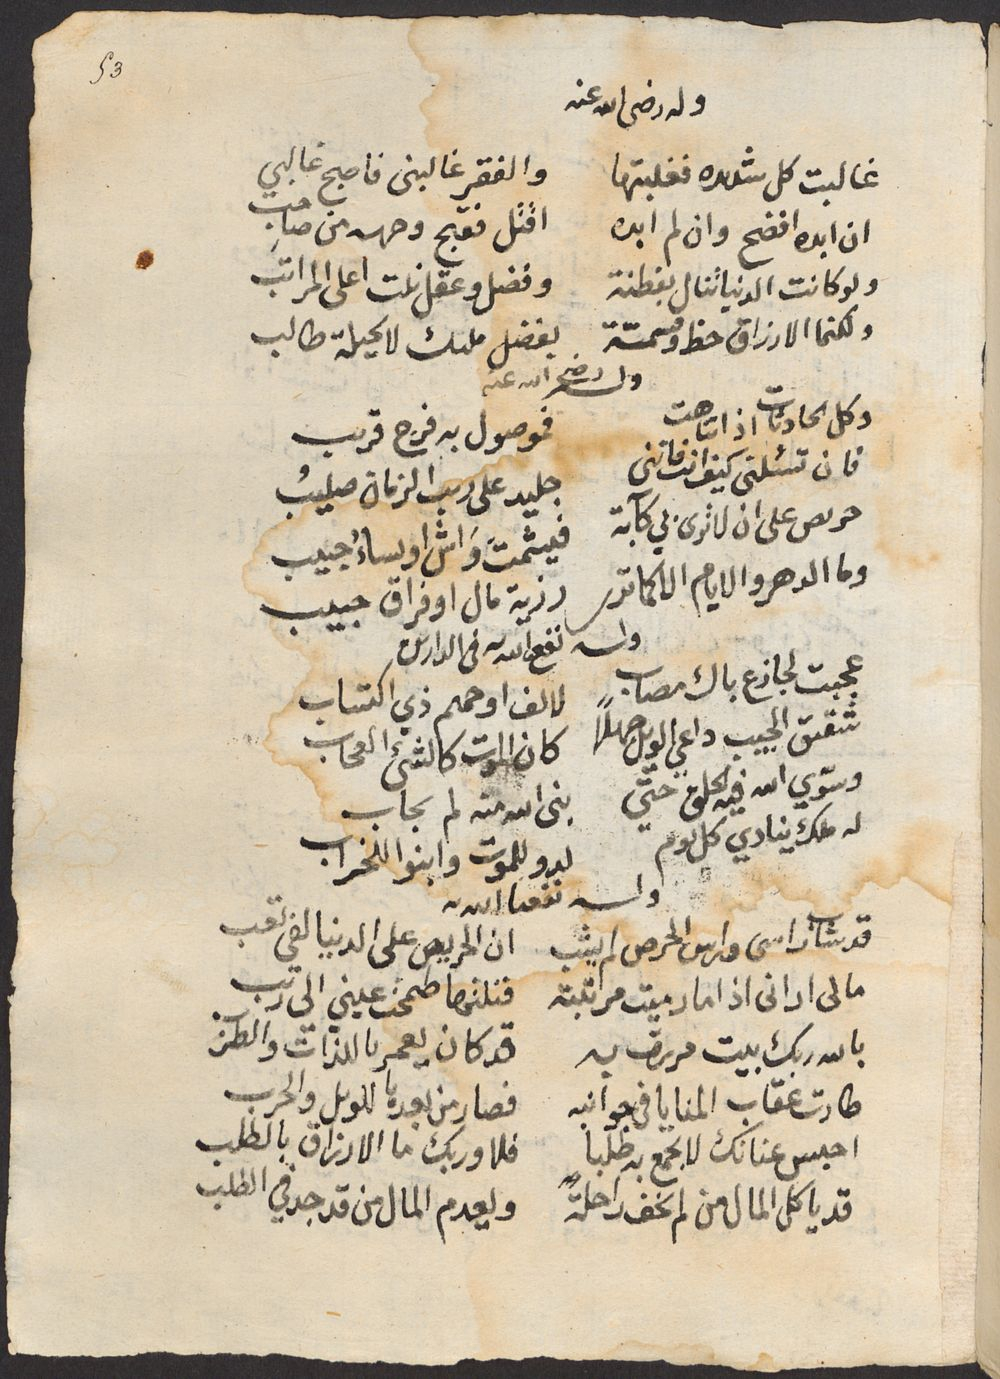 53
وله رضى الله عنه
غالبت كل شديده فغلبتها والفقر غالبنى فاصبح غالبي
ان ابده افضح وان لم ابده اقتل فقبح وجهه من صاحب
ولو كانت الدنيا تنال بفطنة وفضل وعقل نلت اعلى المراتب
ولكنما الارزاق حظ وقسمة بفضل مليك لا بحيلة طالب
وله رضى الله عنه
وكل الحادثات اذا تناهت فموصول به فرج قريب
فان تسئلنى كيف انت فاننى جليد على ريب الزمان صليبُ
حريص على ان لا ترى بي كآبة فيشمتَ وَاش او يساءُ حبيب
وما الدهر والايام الا كما ترى رزية مال او فراق حبيب
وله نفع الله به فى الدارين
عجبت لجازع باك مصاب لالف او حميم ذي اكتساب
شقيق الجيب داعي الويل جهلاً كان الموت كالشئ العجاب
وسوّي الله فيه الخلق حتّي نبى الله منه لم يحاب
له ملك ينادي كل يوم لدو للموت وابنوا للخراب
وله نفعنا الله به
قد شاب راسى وراس الحرص لم يشب ان الحريص على الدنيا لفي تعب
مالى ارانى اذا ما رميت مرتبته فنلتها طمحت عيني الى رتب
بالله ربك بيت مررت به قد كان يعمر باللذات والطرب
طارت عقاب المنايا في جوانبه فصار من بعدها للويل والحرب
احبس عنانك لا تجمح به طلبا فلا وربك ما الارزاق بالطلب
قد ياكل المال من لم يخف راحلةً ويعدم المال من قد جد في الطلب